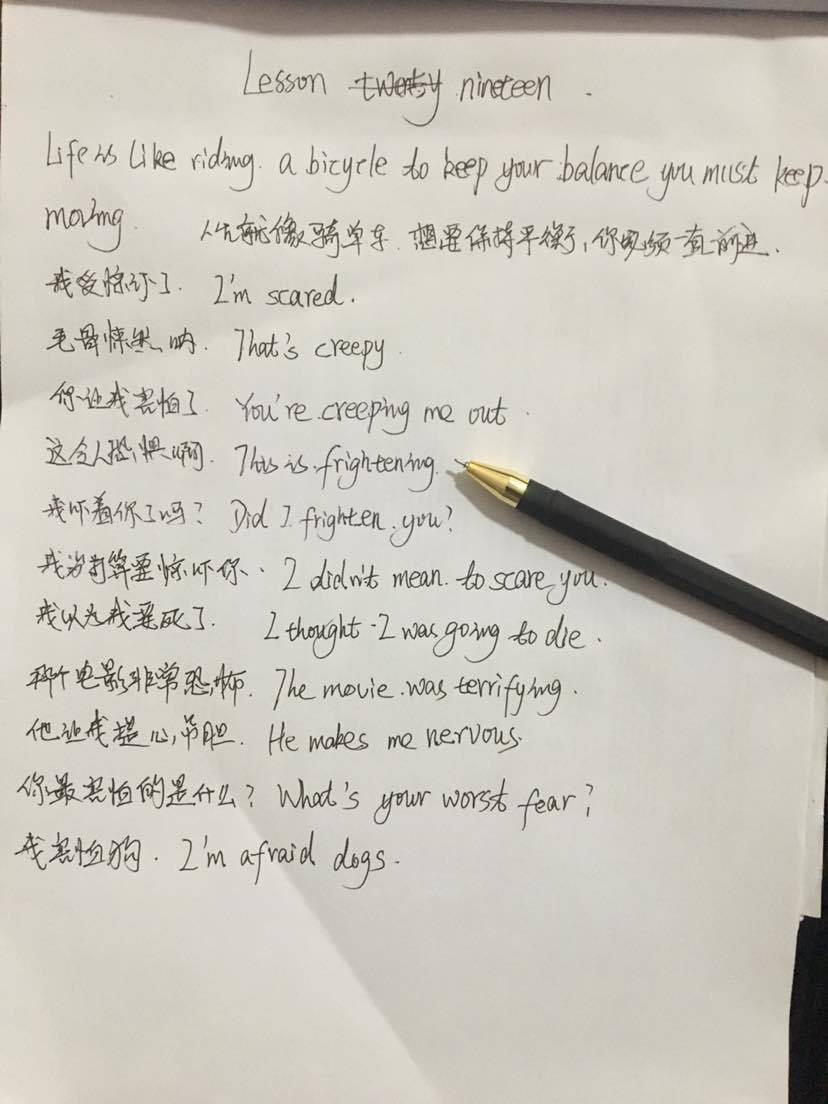 Lesson twenty nineteen .
Life is like riding. a bicycle to keep your balance you must keep
moving. 人生就像骑单车. 想要保持平衡, 你必须一直前进.
我受惊吓了. I'm scared.
毛骨悚然呐. That's creepy.
你让我害怕了. You're creeping me out.
这令人恐惧啊. This is frightening.
我吓着你了吗? Did I frighten you?
我没打算要惊吓你. I didn't mean. to scare you.
我以为我要死了. I thought I was going to die.
那个电影非常恐怖. The movie was terrifying.
他让我提心吊胆. He makes me nervous.
你最害怕的是什么? What's your worst fear?
我害怕狗. I'm afraid dogs.